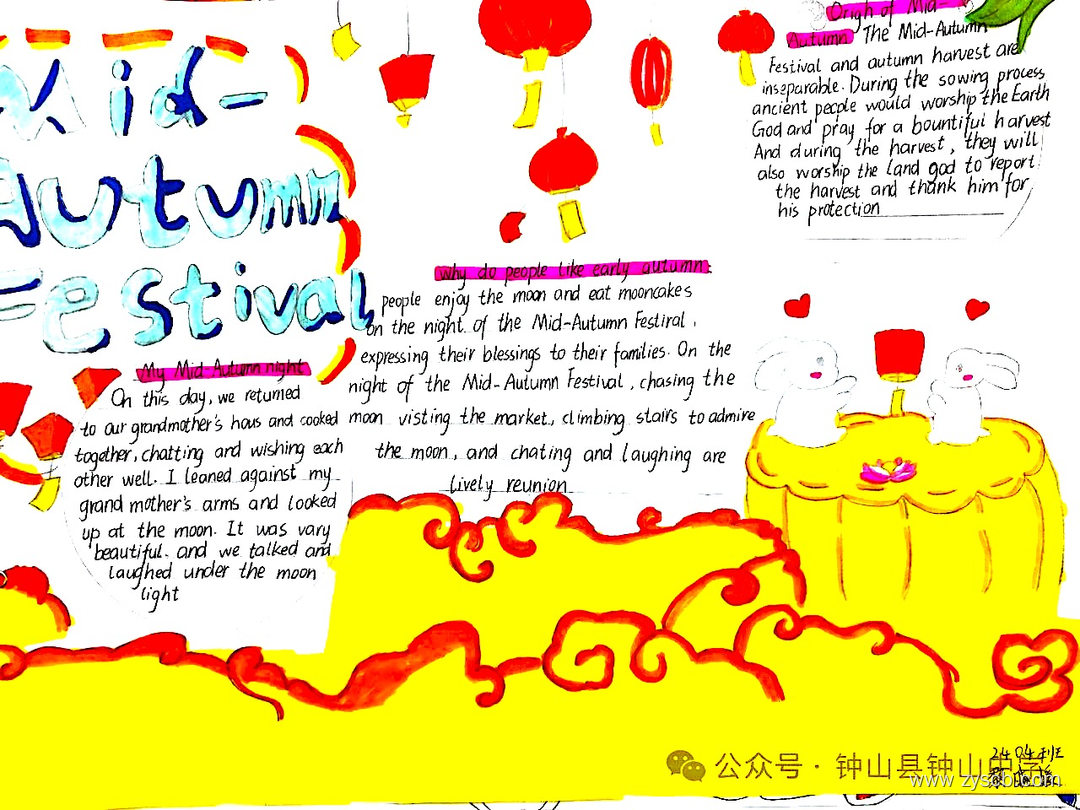 Mid-
Autumn
Festival
My Mid-Autumn night
On this day, we returned
to our grandmother's hous and cooked
together, chatting and wishing each
other well. I leaned against my
grand mother's arms and looked
up at the moon. It was vary
beautiful. and we talked and
laughed under the moon
light
why do people like early autumn.
people enjoy the moon and eat mooncakes
on the night. of the Mid-Autumn Festiral.
expressing their blessings to their families. On the
night of the Mid-Autumn Festival, chasing the
moon visting the market, climbing stairs to admire
the moon, and chating and laughing are
lively reunion
Origh of Mid-
Autumn The Mid-Autumn
Festival and autumn harvest are
inseparable. During the sowing process
ancient people would worship the Earth
God and pray for a bountiful harvest
And during the harvest, they will
also worship the land god to report
the harvest and thank him for
his protection
2404班
公众号·钟山县钟山中学